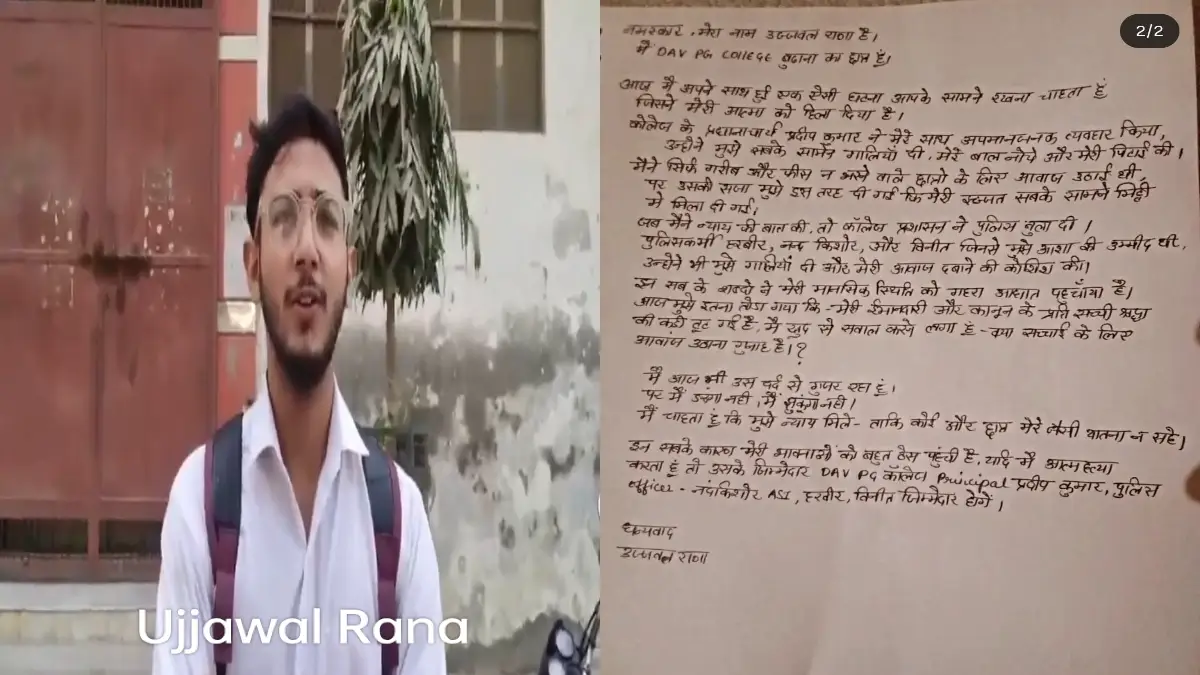 Ujjawal Rana
2/2
नमस्कार, मेरा नाम उज्जवल राणा है।
मैं DAV PG COllEGE बुढाना का छात्र हूं।
आज मैं अपने साथ हुई एक ऐसी घटना आपके सामने रखना चाहता हूं
जिसने मेरी आत्मा को हिला दिया है।
कॉलेज के प्रधानाचार्य प्रदीप कुमार ने मेरे साथ अपमानजनक व्यवहार किया,
उन्होंने मुझे सबके सामने गालियाँ दी, मेरे बाल नोचे और मेरी पिटाई की।
मैंने सिर्फ गरीब और फीस न भरने वाले छात्रों के लिए आवाज उठाई थी,
पर उसकी सजा मुझे इस तरह दी गई कि मेरी इज्जत सबके सामने मिट्टी
में मिला दी गई।
जब मैंने न्याय की बात की, तो कॉलेज प्रशासन ने पुलिस बुला दी।
पुलिसकर्मी हरवीर, नन्द किशोर, और विनीत जिनसे मुझे आशा की उम्मीद थी,
उन्होंने भी मुझे गालियाँ दी और मेरी आवाज दबाने की कोशिश की।
इन सब के ने मेरी मानसिक स्थिति को गहरा आघात पहुँचाया है।
आज मुझे इतना तोडा गया कि - मेरी ईमानदारी और कानून के प्रति सच्ची श्रद्धा
की कडी टूट गई है, मैं खुद से सवाल करने लगा हूं - क्या सच्चाई के लिए
आवाज उठाना गुनाह है।?
मैं आज भी उस दर्द से गुजर रहा हूं।
पर मैं डरूंगा नही, मैं झुकूंगा नही।
मैं चाहता हूं कि मुझे न्याय मिले - ताकि कोई और छात्र मेरे जैसी यातना न सहे।
इन सबके कारण मेरी भावनाओं को बहुत ठेस पहुंची है, यदि मैं आत्महत्या
करता हूं तो उसके जिम्मेदार DAV PG कॉलेज Principal प्रदीप कुमार, पुलिस
officer - नंदकिशोर ASI, हरवीर, विनीत जिम्मेदार होगें।
धन्यवाद
उज्जवल राणा